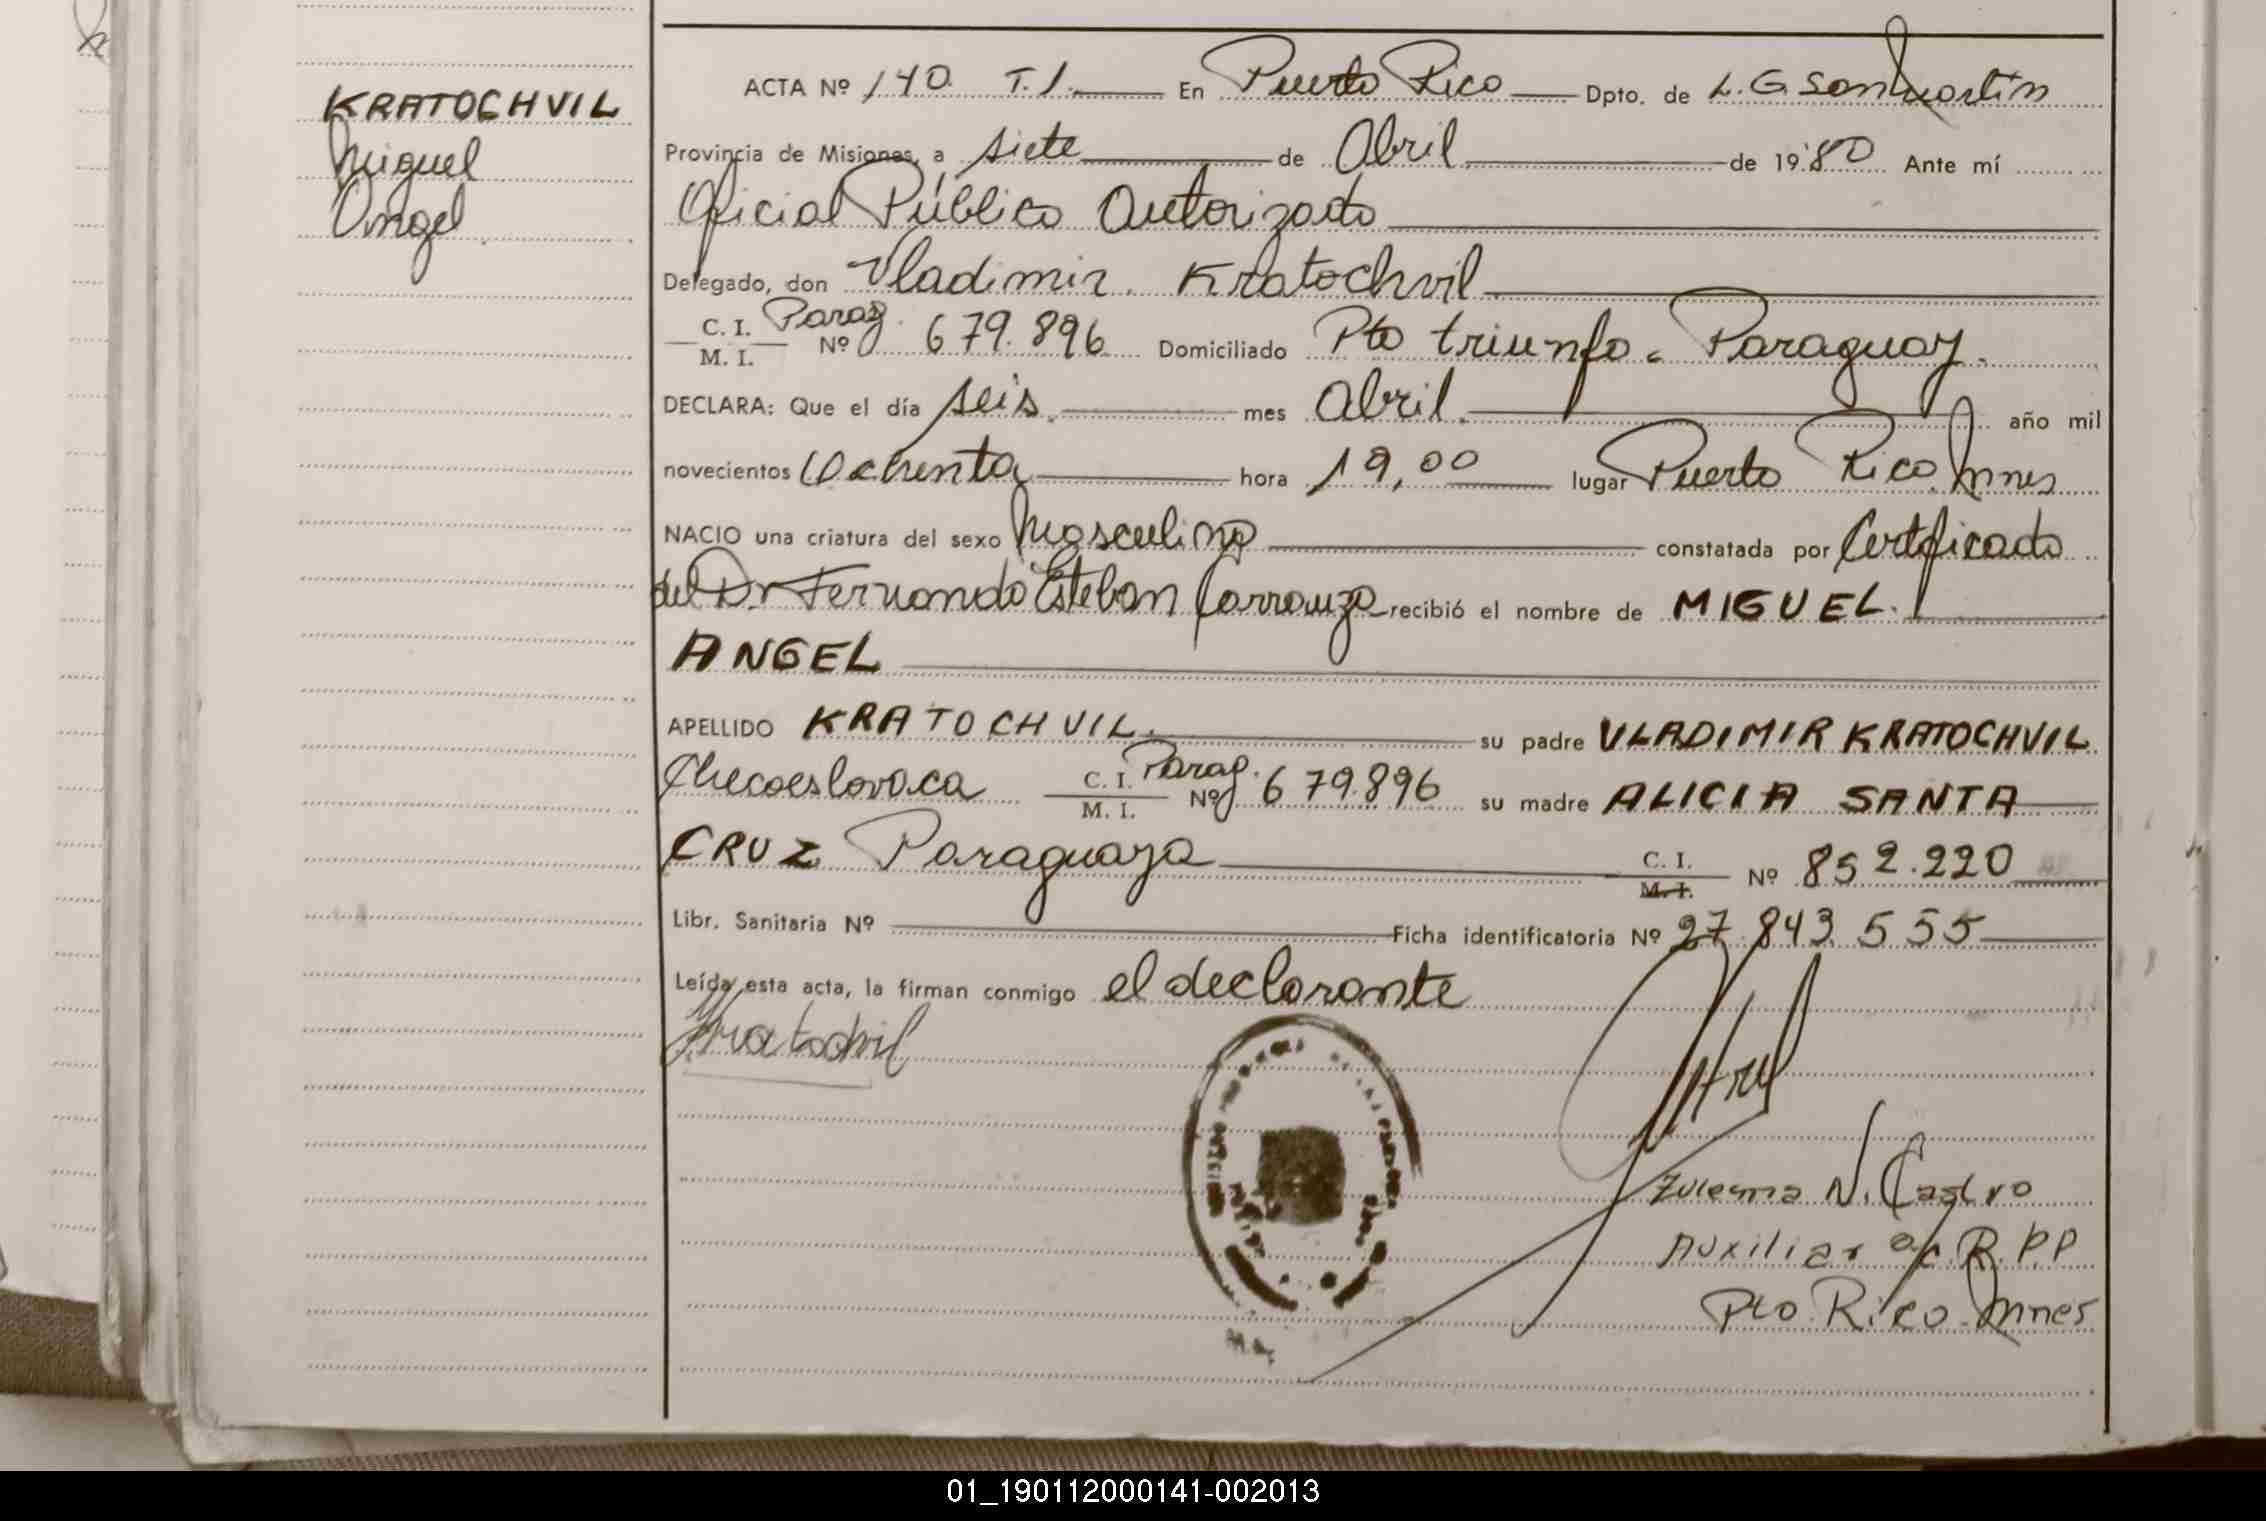 KRATOCHVIL
Miguel
Angel
ACTA Nº 140 T.1. En Puerto Rico Dpto. de L.G San Martin
Provincia de Misiones, a siete de Abril de 1980 Ante mí
Oficial Público Autorizado
Delegado, don Vladimir Kratochvil
C. I. M. I. Parag. Nº 679.896 Domiciliado Pto triunfo - Paraguay.
DECLARA: Que el día seis mes Abril año mil
novecientos Ochenta hora 19,00 lugar Puerto Rico. Mnes
NACIO una criatura del sexo Masculino constatada por Certificado
del Dr Fernando Esteban Carranza recibió el nombre de MIGUEL
ANGEL
APELLIDO KRATOCHVIL. su padre VLADIMIR KRATOCHVIL
Checoeslovaca C. I. M. I. Parag. Nº 679.896 su madre ALICIA SANTA
CRUZ Paraguaya C. I. M. I. Nº 852.220
Libr. Sanitaria Nº Ficha identificatoria Nº 27.843.555
Leída esta acta, la firman conmigo el declarante
Kratochvil
Zulema N. Castro
Auxiliar a/c. R.P.P
Pto Rico Mnes
01_190112000141-002013